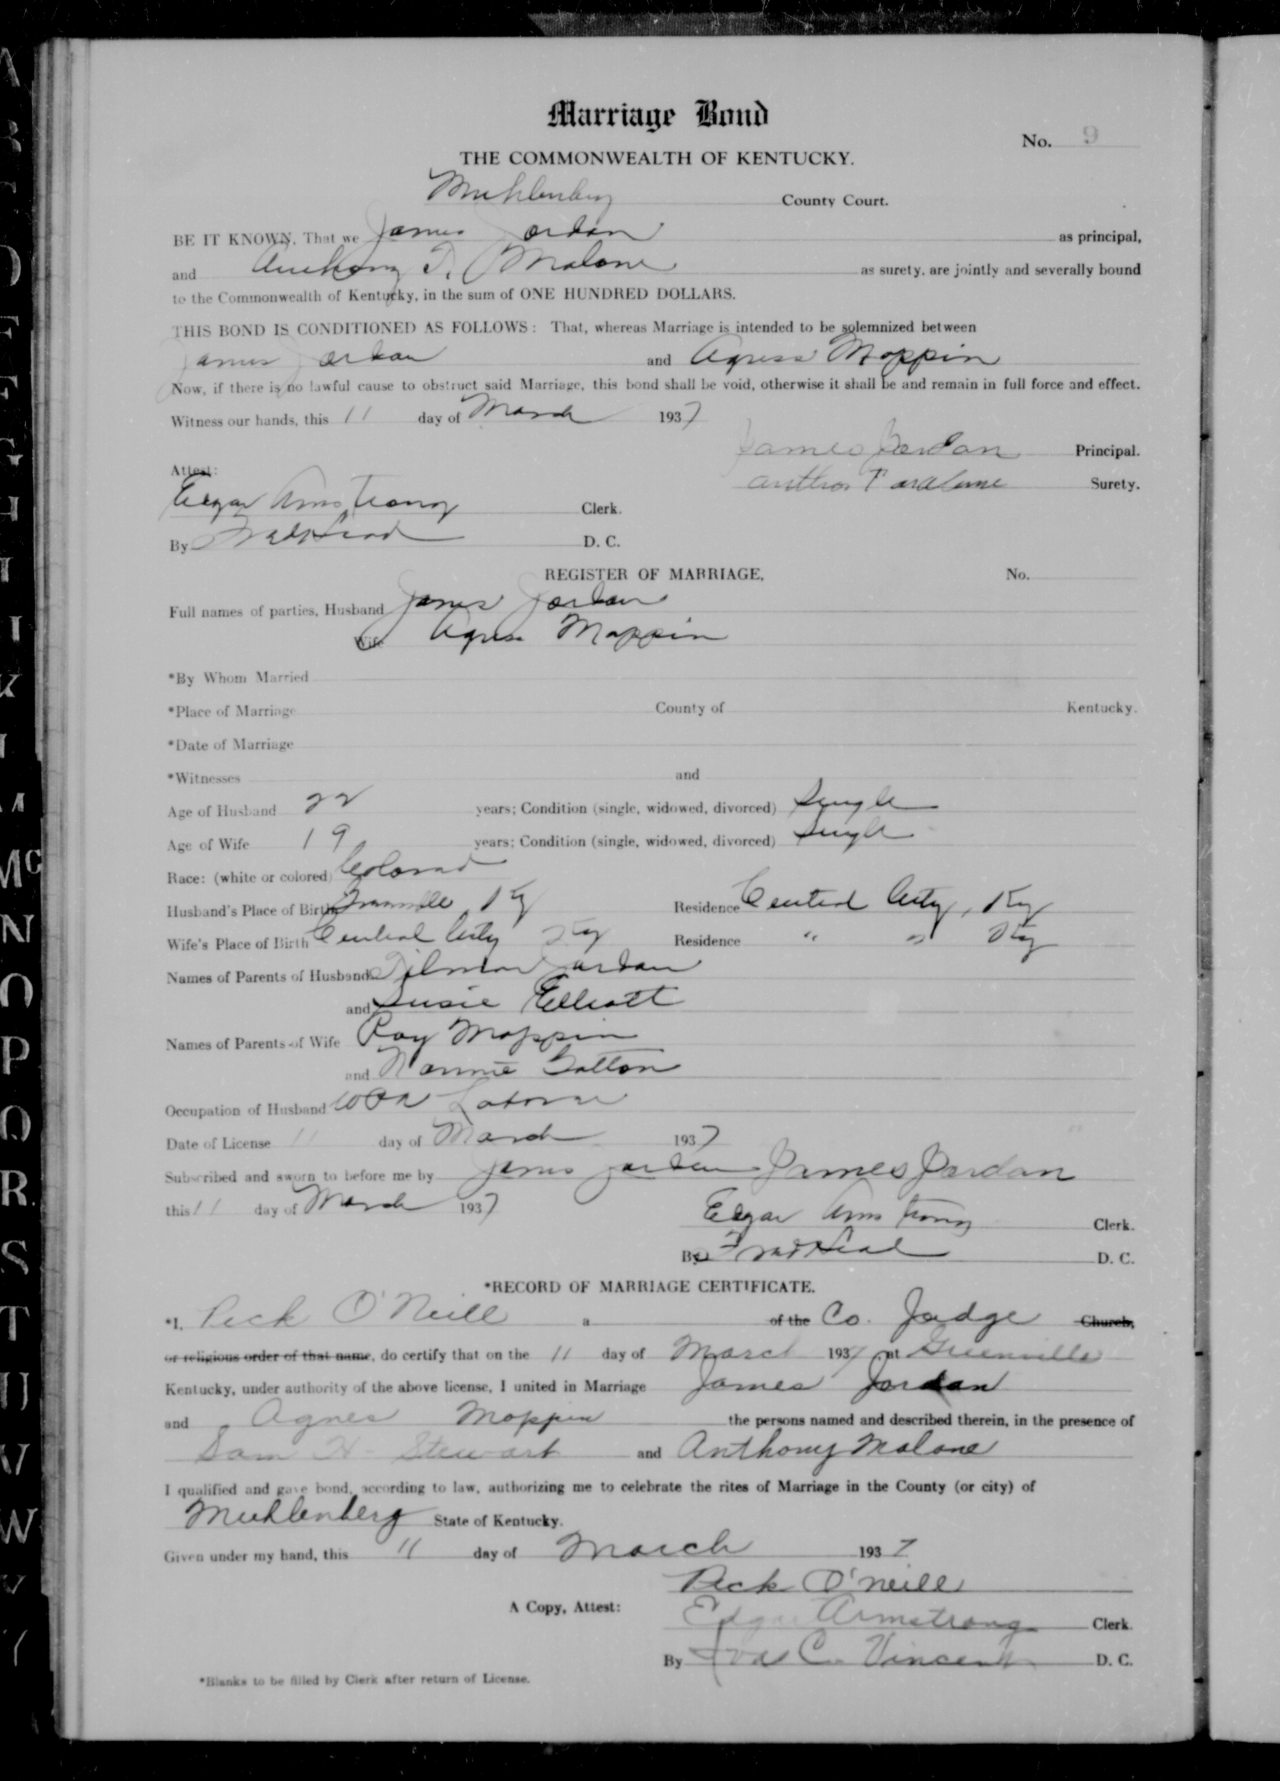 Marriage Bond
No. 9
THE COMMONWEALTH OF KENTUCKY.
Muhlenberg County Court.
BE IT KNOWN, That we James Jordan as principal,
and Anthony T. Malone as surety, are jointly and severally bound
to the Commonwealth of Kentucky, in the sum of ONE HUNDRED DOLLARS.
THIS BOND IS CONDITIONED AS FOLLOWS: That, whereas Marriage is intended to be solemnized between
James Jordan and Agness Moppin
Now, if there is no lawful cause to obstruct said Marriage, this bond shall be void, otherwise it shall be and remain in full force and effect.
Witness our hands, this 11 day of March 1937
James Jordan Principal.
Attest:
Surety.
Edgar Armstrong Clerk.
By D. C.
REGISTER OF MARRIAGE, No.
Full names of parties, Husband James Jordan
Wife Agness Moppin
*By Whom Married
*Place of Marriage County of Kentucky.
*Date of Marriage
*Witnesses and
Age of Husband 22 years; Condition (single, widowed, divorced) Single
Age of Wife 19 years; Condition (single, widowed, divorced) Single
Race: (white or colored) Colored
Husband's Place of Birth Ky Residence Central City, Ky
Wife's Place of Birth Central City Ky Residence " " Ky
Names of Parents of Husband Tilman Jordan
and Susie Elliott
Names of Parents of Wife Roy Moppin
and Nannie Gatton
Occupation of Husband WPA Laborer
Date of License 11 day of March 1937
Subscribed and sworn to before me by James Jordan James Jordan
this 11 day of March 1937
Edgar Armstrong Clerk.
By D. C.
*RECORD OF MARRIAGE CERTIFICATE.
*I, Peck O'Neill a of the Co. Judge Church,
or religious order of that name, do certify that on the 11 day of March 1937, at Greenville
Kentucky, under authority of the above license, I united in Marriage James Jordan
and Agnes Moppin the persons named and described therein, in the presence of
Sam H. Stewart and Anthony Malone
I qualified and gave bond, according to law, authorizing me to celebrate the rites of Marriage in the County (or city) of
Muhlenberg State of Kentucky.
Given under my hand, this 11 day of March 1937
Peck O'Neill
A Copy, Attest:
Edgar Armstrong Clerk.
By C. Vincent D. C.
*Blanks to be filled by Clerk after return of License.